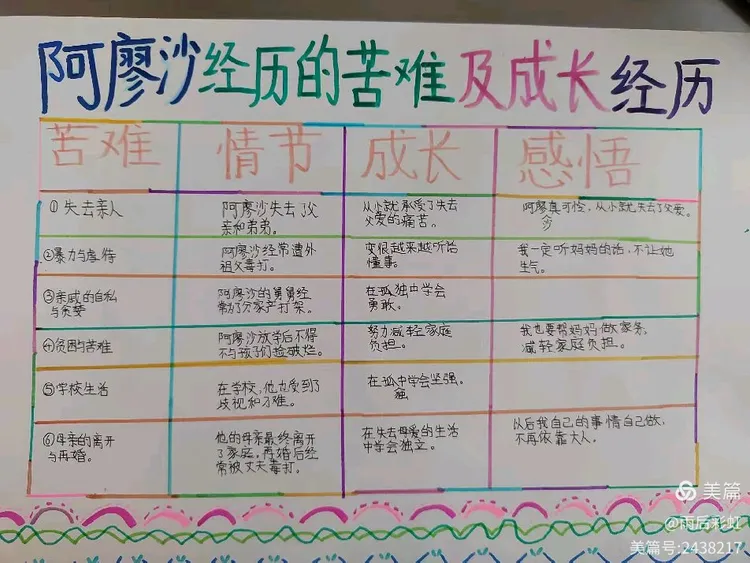 阿廖沙经历的苦难及成长经历
苦难 情节 成长 感悟
①失去亲人
阿廖沙失去了父
亲和弟弟。
从小就承受了失去
父爱的痛苦。
阿廖真可怜，从小就失去了父爱。
沙
②暴力与虐待
阿廖沙经常遭外
祖父毒打。
变得越来越听话
懂事。
我一定听妈妈的话，不让她
生气。
③亲戚的自私
与贪婪
阿廖沙的舅舅经
常为了分家产打架。
在孤独中学会
勇敢。
④贫困与苦难
阿廖沙放学后不得
不与孩子们捡破烂。
努力减轻家庭
负担。
我也要帮妈妈做家务，
减轻家庭负担。
⑤学校生活
在学校，他也受到了
歧视和刁难。
在孤中学会坚强。
独
⑥母亲的离开
与再婚。
他的母亲最终离开
了家庭，再婚后经
常被丈夫毒打。
在失去母爱的生活
中学会独立。
以后我自己的事情自己做，
不再依靠大人。
美篇
@雨后彩虹
美篇号:2438217